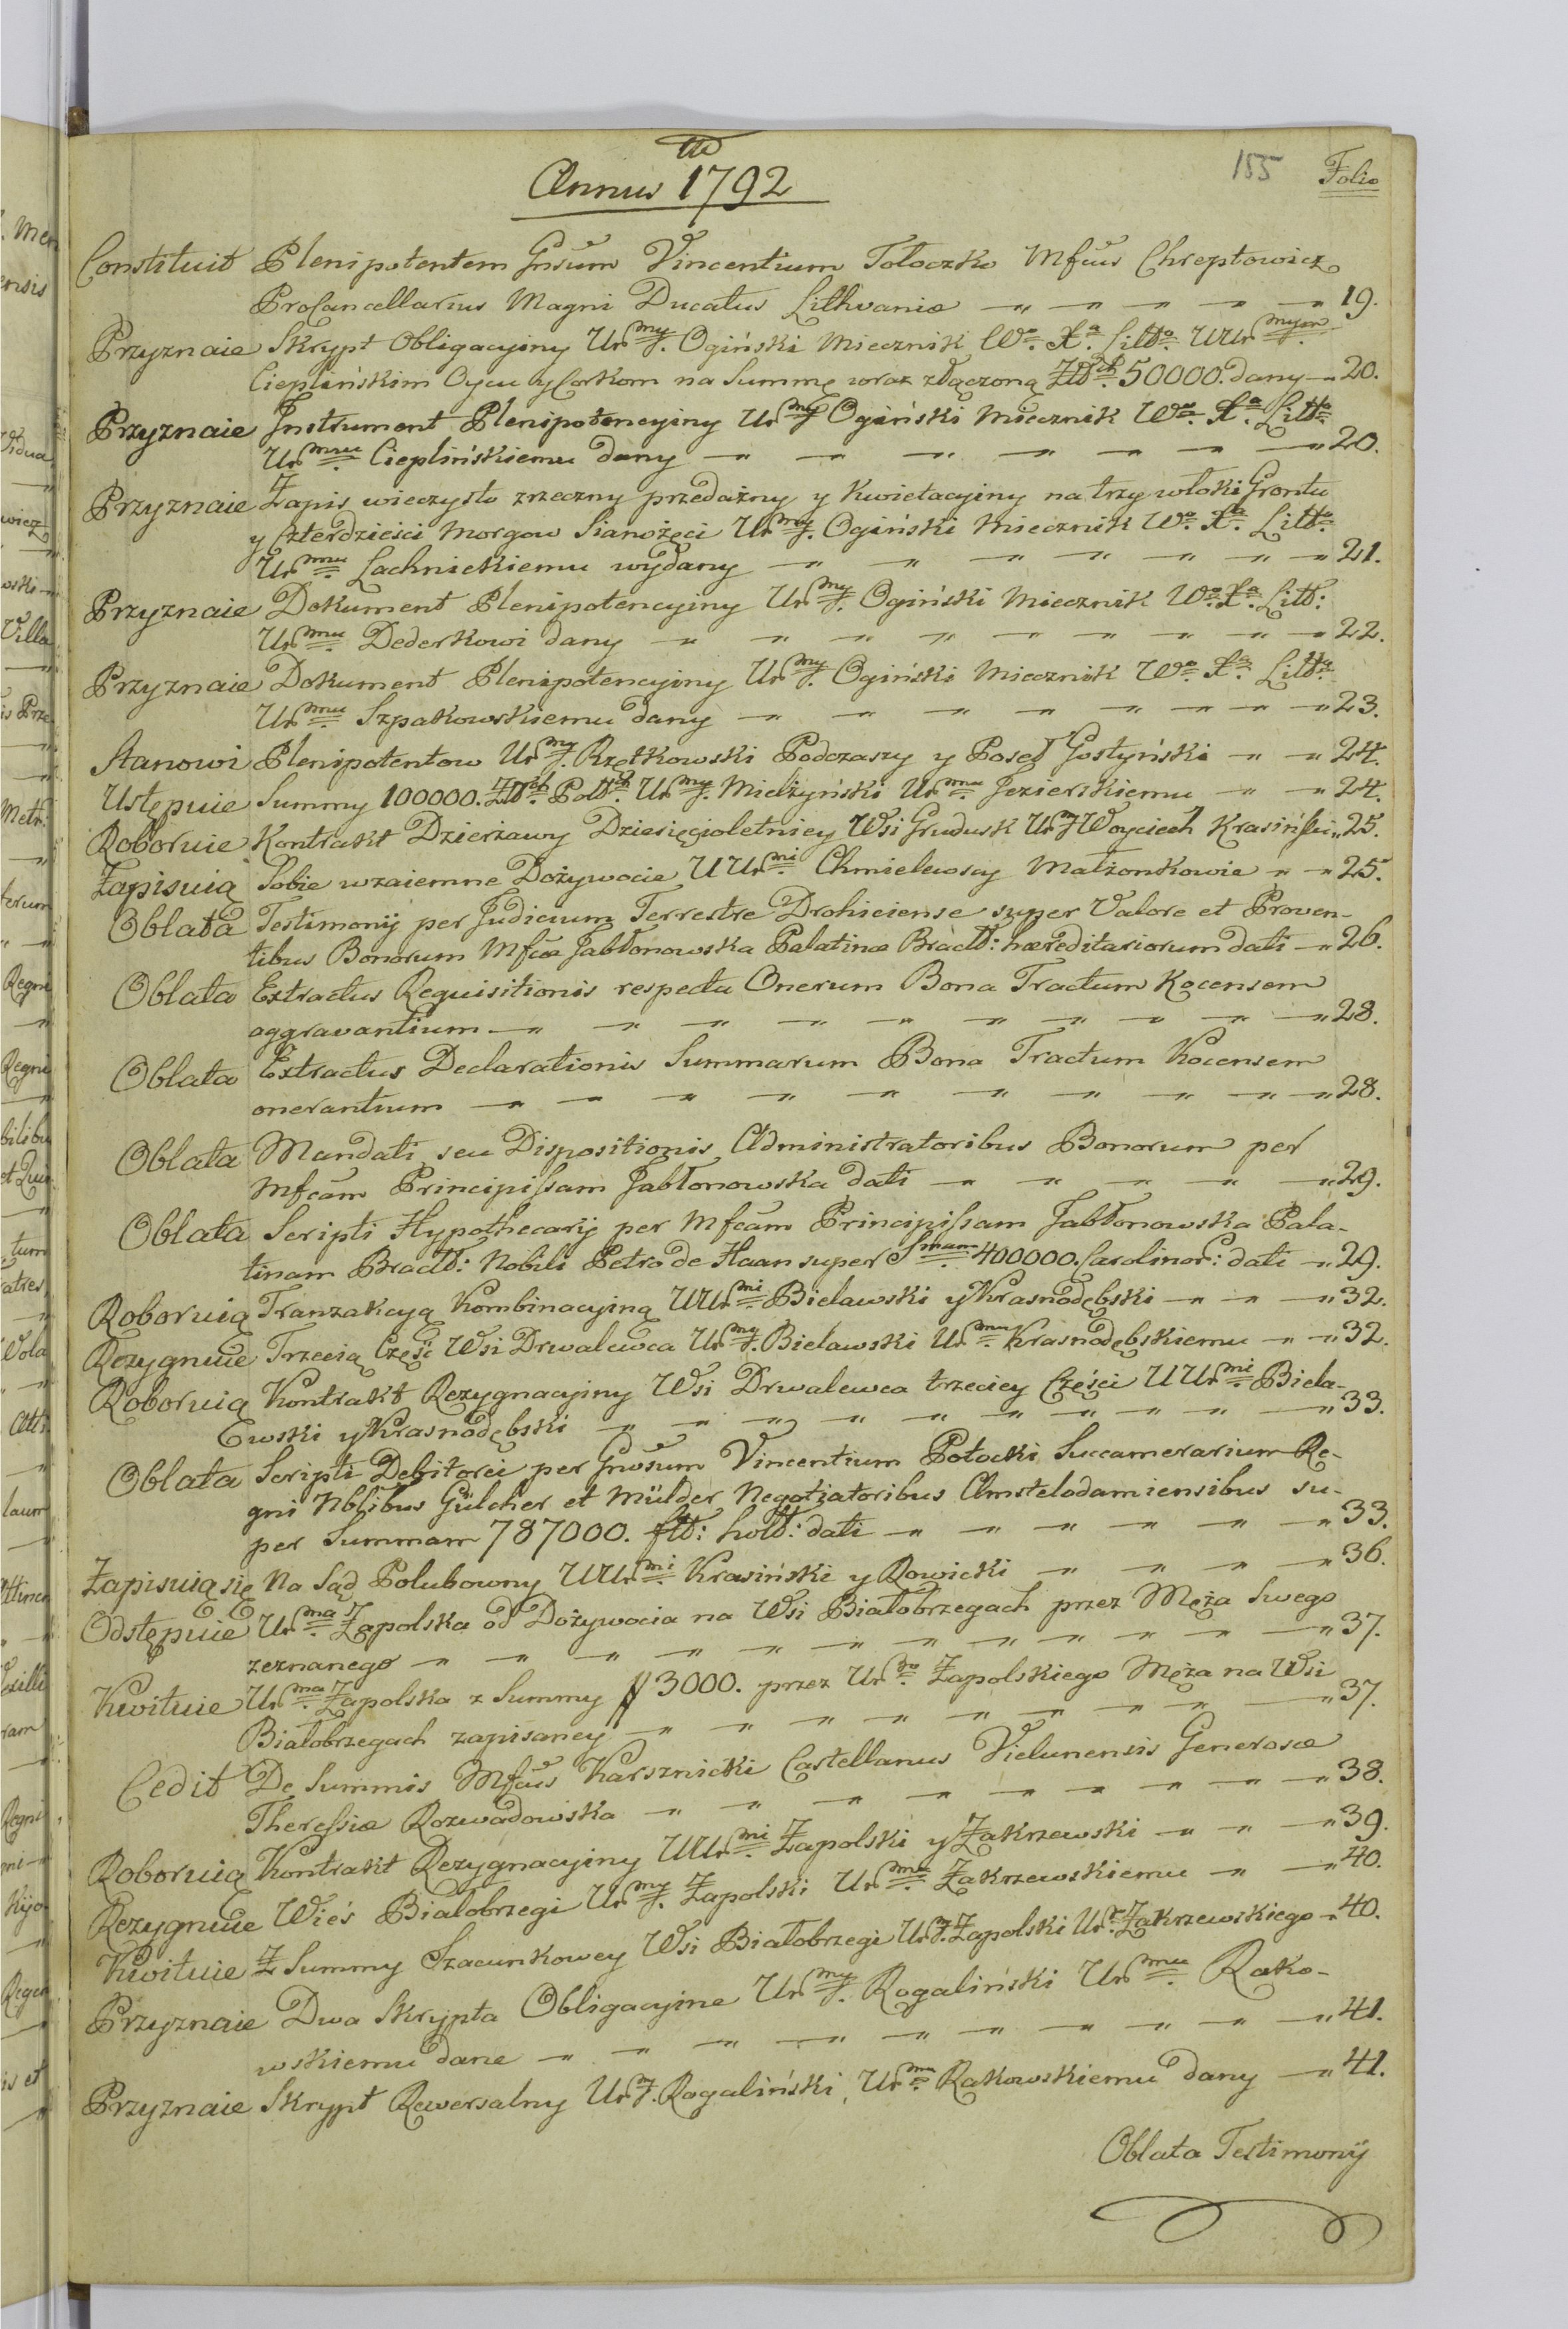 155 Folio
Annus 1792
Constituit Plenipotentem Gnsum Vincentium Tołoczko Mfcus Chreptowicz
ProCancellarius Magni Ducatus Lithvaniæ 19.
Przyznaie Skrypt Obligacyiny Ur my J. Ogiński Miecznik Wo. Xa. Litto. UUr mym J.
Cieplińskim Oycu y Corkom na Summę wraz złączoną Złł ch. 50000. dany 20.
Przyznaie Instrument Plenipotencyiny Ur my J Ogiński Miecznik Wo. Xa. Litto
Ur mu. Cieplińskiemu dany 20.
Przyznaie Zapis wieczysto zrzeczny przedażny y kwietacyiny na trzy włoki Grontu
y Czterdzieści Morgow Sianożęci Ur my J. Ogiński Miecznik Wo. Xa. Litto
Ur mu. Lachnickiemu wydany 21.
Przyznaie Dokument Plenipotencyiny Ur my J. Ogiński Miecznik Wo. Xa. Litt:
Ur mu. Dederkowi dany 22.
Przyznaie Dokument Plenipotencyiny Ur my J. Ogiński Miecznik Wo. Xa. Litto
Ur mu. Szpakowskiemu dany 23.
Stanowi Plenipotentow Ur my J. Rzętkowski Podczaszy y Poseł Gostyński 24.
Ustępuie Summy 100000. Złł ch. Poll ch. Ur my J. Mielżyński Ur mu. Jezierskiemu 24.
Roboruie Kontrakt Dzierżawy Dziesięcioletniey Wsi Grudusk Ur J Woyciech Krasiński 25.
Zapisuią Sobie wzaiemne Dożywocie UUr mi. Chmielewscy Małżonkowie 25.
Oblata Testimonij per Judicium Terrestre Drohiciense super Valore et Proven-
tibus Bonorum Mfcæ Jabłonowska Palatinæ Bracll: hæreditariorum dati 26.
Oblata Extractus Requisitionis respectu Onerum Bona Tractum Kocensem
aggravantium 28.
Oblata Extractus Declarationis Summarum Bona Tractum Kocensem
onerantium 28.
Oblata Mandati seu Dispositionis Administratoribus Bonorum per
Mfcam Principissam Jabłonowska dati 29.
Oblata Scripti Hypothecarij per Mfcam Principissam Jabłonowska Pala-
tinam Bracll: Nobili Petro de Haan super Smam. 400000. Carolinor: dati 29.
Roboruią Tranzakcyą Kombinacyiną UUr mi. Bielawski y Krasnodębski 32.
Rezygnuie Trzecią Część Wsi Drwalewca Ur my J. Bielawski Ur mu. Krasnodębskiemu 32.
Roboruią Kontrakt Rezygnacyiny Wsi Drwalewca trzeciey Części UUr mi. Biela-
wski y Krasnodębski 33.
Oblata Scripti Debitorei per Gnosum Vincentium Potocki Succamerarium Re-
gni Nblibus Gülcher et Mülder Negotiatoribus Amstelodamiensibus su-
per Summam 787000. fll: holl: dati 33.
Zapisuią się Na Sąd Polubowny UUr mi. Krasiński y Rowicki 36.
Odstępuie Ur ma. Zapolska od Dożywocia na Wsi Białobrzegach przez Męża Swego
zeznanego 37.
Kwituie Ur ma Zapolska z Summy ff 3000. przez Ur go. Zapolskiego Męża na Wsi
Białobrzegach zapisaney 37.
Cedit De Summis Mfcus Karsznicki Castellanus Vielunensis Generosæ
Theressiæ Rozwadowska 38.
Roboruią Kontrakt Rezygnacyiny UUr mi. Zapolski y Zakrzewski 39.
Rezygnuie Wieś Białobrzegi Ur my J. Zapolski Ur mu. Zakrzewskiemu 40.
Kwituie Z Summy Szacunkowey Wsi Białobrzegi Ur J. Zapolski Ur. Zakrzewskiego 40.
Przyznaie Dwa Skrypta Obligacyine Ur my J. Rogaliński Ur mu. Rako-
wskiemu dane 41.
Przyznaie Skrypt Rewersalny Ur J. Rogaliński Ur mu Rakowskiemu dany 41.
Oblata Testimonij